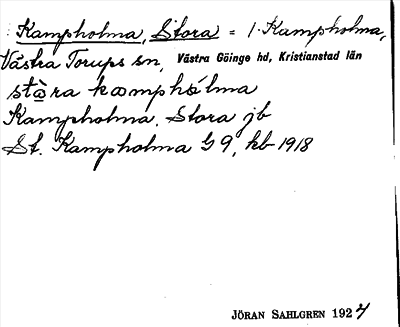 Kampholma, Stora = 1. Kampholma,
Västra Torups sn, Västra Göinge hd, Kristianstad län
stọ̀ra kamphólma
Kampholma. Stora jb
St. Kampholma G 9, kb 1918
JÖRAN SAHLGREN 1924